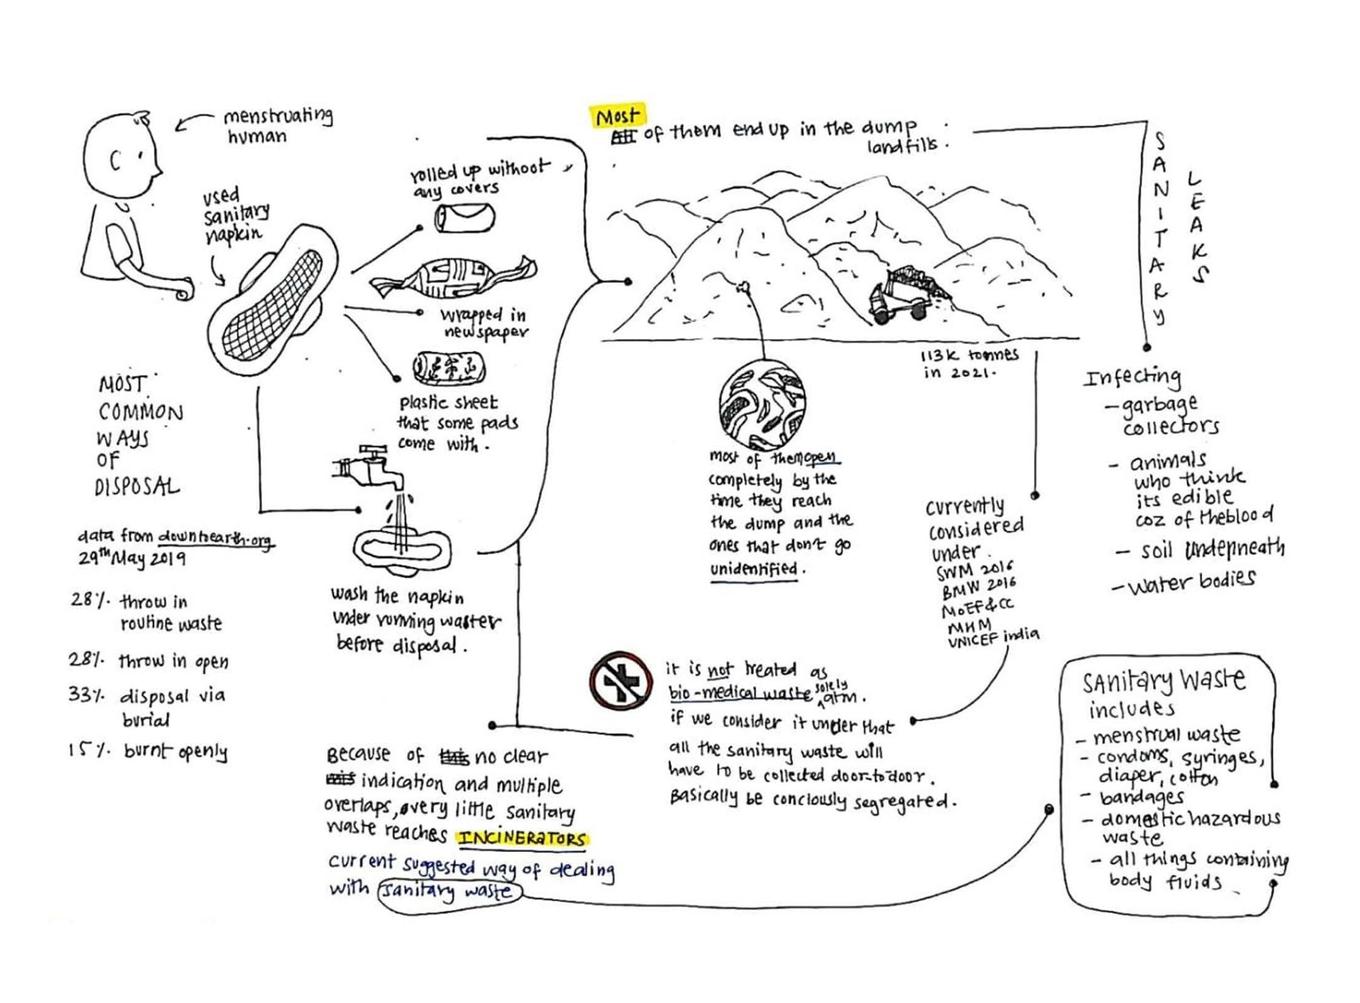 menstruating
human
used
sanitary
napkin
rolled up without
any covers
wrapped in
newspaper
plastic sheet
that some pads
come with.
MOST
COMMON
WAYS
OF
DISPOSAL
data from downtoearth.org
29th May 2019
28% throw in
routine waste
28% throw in open
33% disposal via
burial
15% burnt openly
wash the napkin
under running waster
before disposal.
Most
of them end up in the dump
landfills.
113k tonnes
in 2021.
most of them open
completely by the
time they reach
the dump and the
ones that don't go
unidentified.
SANITARY
LEAKS
Infecting
- garbage
collectors
- animals
who think
its edible
coz of the blood
- soil underneath
- water bodies
currently
considered
under.
SWM 2016
BMW 2016
MoEF&CC
MHM
UNICEF india
it is not treated as
bio-medical waste solely atm.
if we consider it under that
all the sanitary waste will
have to be collected door to door.
Basically be conciously segregated.
Because of no clear
indication and multiple
overlaps, very little sanitary
waste reaches INCINERATORS
current suggested way of dealing
with sanitary waste
SANitary Waste
includes
- menstrual waste
- condoms, syringes,
diaper, cotton
- bandages
- domestic hazardous
waste
- all things containing
body fluids